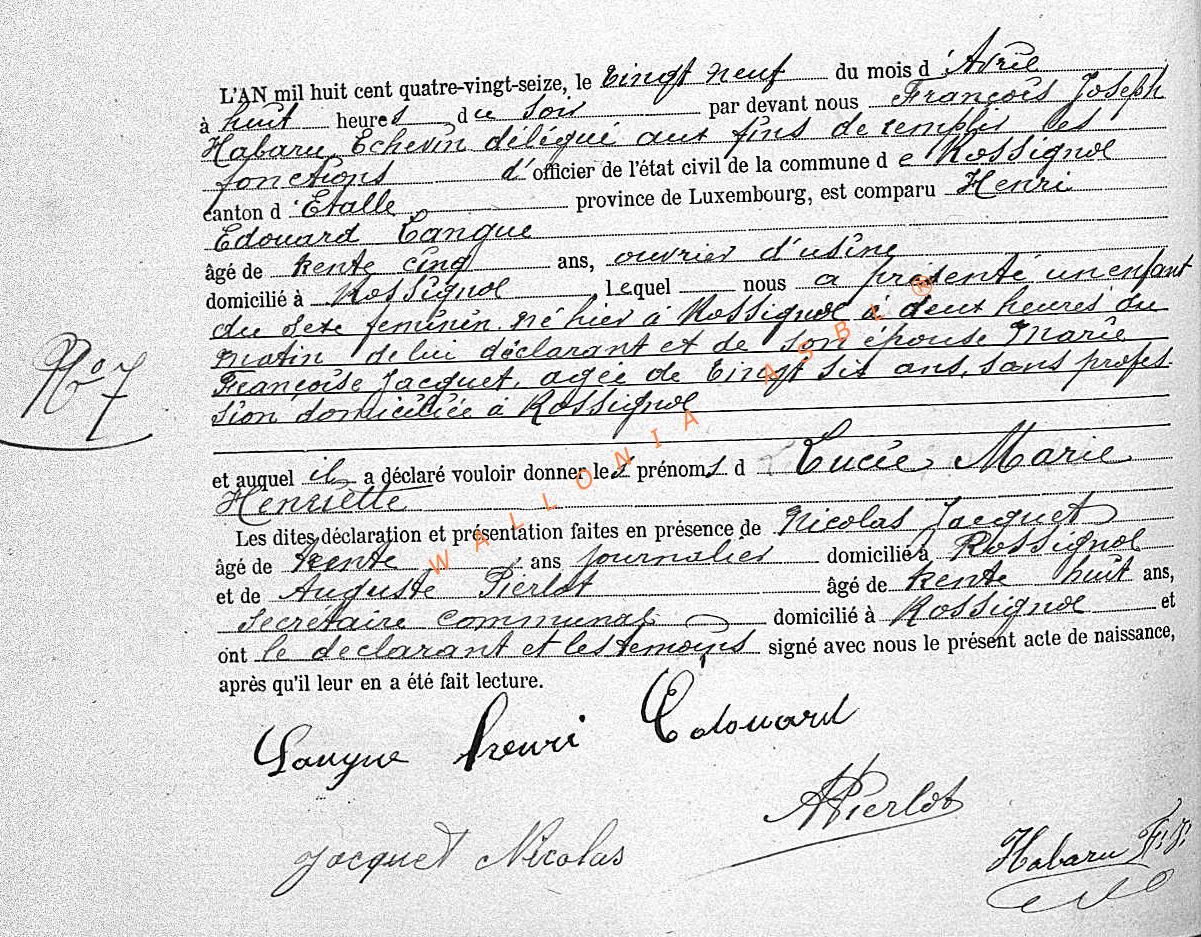 L'AN mil huit cent quatre-vingt-seize, le vingt neuf du mois d'Avril
à huit heures du soir par devant nous François Joseph
Habaru, Echevin délégué aux fins de remplir les
fonctions d'officier de l'état civil de la commune de Rossignol
canton d'Etalle province de Luxembourg, est comparu Henri
Edouard Tangue
âgé de trente cinq ans, ouvrier d'usine
domicilié à Rossignol lequel nous a présenté un enfant
du sexe feminin né hier à Rossignol à deux heures du
matin de lui déclarant et de son épouse Marie
Françoise Jacquet, agée de vingt six ans, sans profes-
sion domiciliée à Rossignol
et auquel il a déclaré vouloir donner les prénoms d Lucie Marie
Henriette
Les dites déclaration et présentation faites en présence de Nicolas Jacquet
âgé de trente ans journalier domicilié à Rossignol
et de Auguste Pierlot âgé de trente huit ans,
secrétaire communal domicilié à Rossignol et
ont le déclarant et les temoins signé avec nous le présent acte de naissance,
après qu'il leur en a été fait lecture.
N° 7
Tangue Henri Edouard
A Pierlot
Jacquet Nicolas
Habaru F. J.
WALLONIA ASBL ®